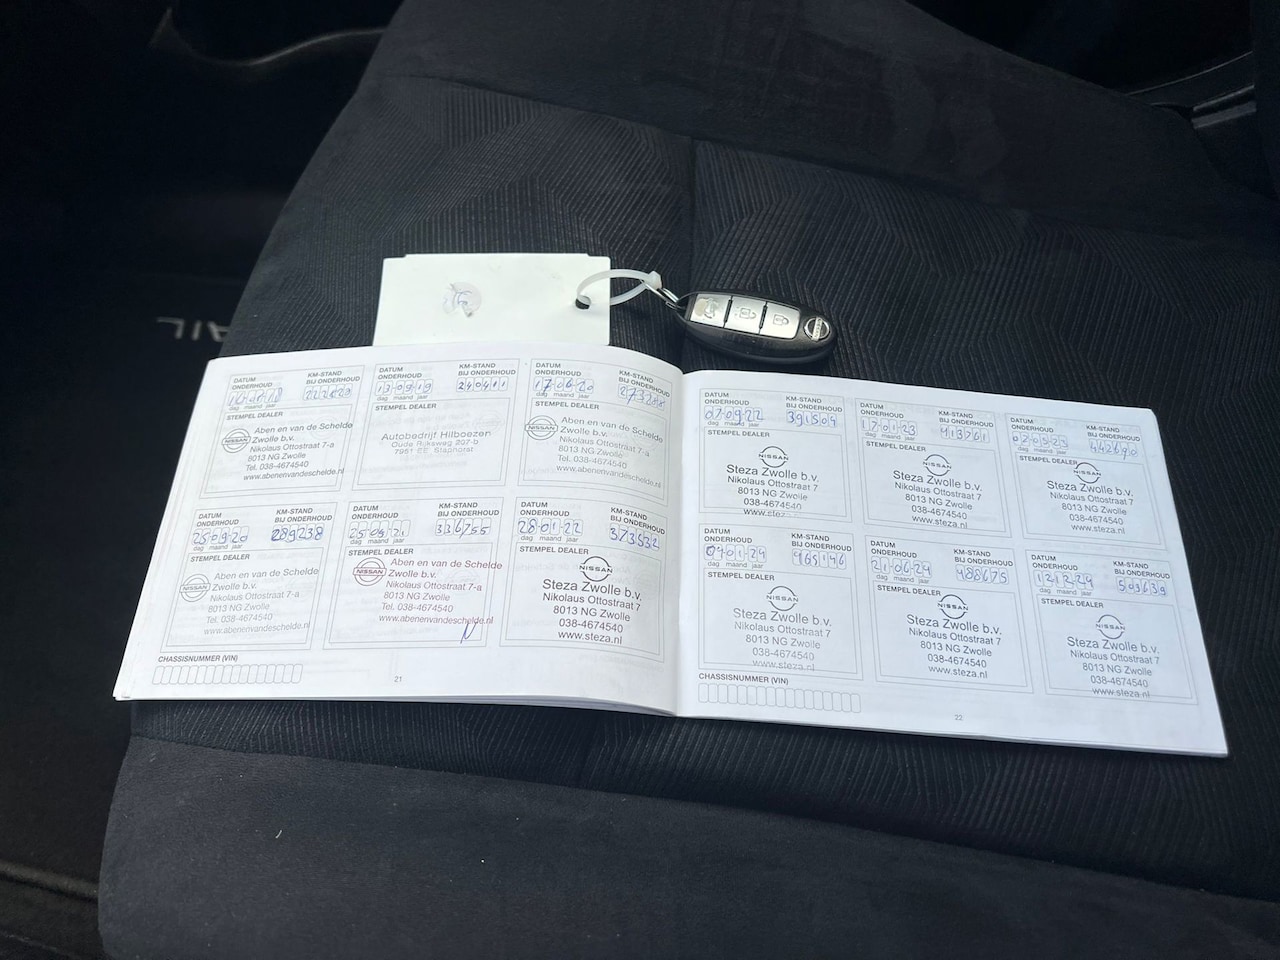 AIL
DATUM ONDERHOUD
KM-STAND BIJ ONDERHOUD
dag maand jaar
STEMPEL DEALER
NISSAN
Aben en van de Schelde
Zwolle b.v.
Nikolaus Ottostraat 7-a
8013 NG Zwolle
Tel. 038-4674540
www.abenenvandeschelde.nl
DATUM ONDERHOUD
KM-STAND BIJ ONDERHOUD
13 09 19
240411
dag maand jaar
STEMPEL DEALER
Autobedrijf Hilboezen
Oude Rijksweg 207-b
7951 EE Staphorst
DATUM ONDERHOUD
KM-STAND BIJ ONDERHOUD
17 06 20
273288
dag maand jaar
STEMPEL DEALER
NISSAN
Aben en van de Schelde
Zwolle b.v.
Nikolaus Ottostraat 7-a
8013 NG Zwolle
Tel. 038-4674540
www.abenenvandeschelde.nl
DATUM ONDERHOUD
KM-STAND BIJ ONDERHOUD
25 09 20
289238
dag maand jaar
STEMPEL DEALER
NISSAN
Aben en van de Schelde
Zwolle b.v.
Nikolaus Ottostraat 7-a
8013 NG Zwolle
Tel. 038-4674540
www.abenenvandeschelde.nl
DATUM ONDERHOUD
KM-STAND BIJ ONDERHOUD
336755
dag maand jaar
STEMPEL DEALER
NISSAN
Aben en van de Schelde
Zwolle b.v.
Nikolaus Ottostraat 7-a
8013 NG Zwolle
Tel. 038-4674540
www.abenenvandeschelde.nl
DATUM ONDERHOUD
KM-STAND BIJ ONDERHOUD
28 01 22
373522
dag maand jaar
STEMPEL DEALER
NISSAN
Steza Zwolle b.v.
Nikolaus Ottostraat 7
8013 NG Zwolle
038-4674540
www.steza.nl
CHASSISNUMMER (VIN)
21
DATUM ONDERHOUD
KM-STAND BIJ ONDERHOUD
07 09 22
391504
dag maand jaar
STEMPEL DEALER
NISSAN
Steza Zwolle b.v.
Nikolaus Ottostraat 7
8013 NG Zwolle
038-4674540
www.steza.nl
DATUM ONDERHOUD
KM-STAND BIJ ONDERHOUD
17 01 23
413761
dag maand jaar
STEMPEL DEALER
NISSAN
Steza Zwolle b.v.
Nikolaus Ottostraat 7
8013 NG Zwolle
038-4674540
www.steza.nl
DATUM ONDERHOUD
KM-STAND BIJ ONDERHOUD
442690
dag maand jaar
STEMPEL DEALER
NISSAN
Steza Zwolle b.v.
Nikolaus Ottostraat 7
8013 NG Zwolle
038-4674540
www.steza.nl
DATUM ONDERHOUD
KM-STAND BIJ ONDERHOUD
04 01 24
465146
dag maand jaar
STEMPEL DEALER
NISSAN
Steza Zwolle b.v.
Nikolaus Ottostraat 7
8013 NG Zwolle
038-4674540
www.steza.nl
DATUM ONDERHOUD
KM-STAND BIJ ONDERHOUD
21 06 24
488675
dag maand jaar
STEMPEL DEALER
NISSAN
Steza Zwolle b.v.
Nikolaus Ottostraat 7
8013 NG Zwolle
038-4674540
www.steza.nl
DATUM ONDERHOUD
KM-STAND BIJ ONDERHOUD
503639
dag maand jaar
STEMPEL DEALER
NISSAN
Steza Zwolle b.v.
Nikolaus Ottostraat 7
8013 NG Zwolle
038-4674540
www.steza.nl
CHASSISNUMMER (VIN)
22